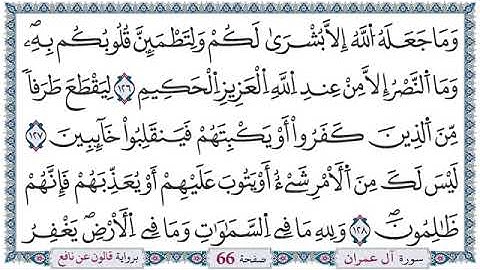 وَمَا جَعَلَهُ اللَّهُ إِلَّا بُشْرَىٰ لَكُمْ وَلِتَطْمَئِنَّ قُلُوبُكُم بِهِۦ
وَمَا اَ۬لنَّصْرُ إِلَّا مِنْ عِندِ اِ۬للَّهِ اِ۬لْعَزِيزِ اِ۬لْحَكِيمِ ١٢٦ لِيَقْطَعَ طَرَفاٗ
مِّنَ اَ۬لذِينَ كَفَرُوا أَوْ يَكْبِتَهُمْ فَيَنقَلِبُوا خَآئِبِينَ ١٢٧
لَيْسَ لَكَ مِنَ اَ۬لْأَمْرِ شَےْءٌ أَوْ يَتُوبَ عَلَيْهِمْ أَوْ يُعَذِّبَهُمْ فَإِنَّهُمْ
ظَٰلِمُونَ ١٢٨ وَلِلهِ مَا فِے اِ۬لسَّمَٰوَٰتِ وَمَا فِے اِ۬لْأَرْضِ يَغْفِرُ
سورة آل عمران صفحة 66 برواية قالون عن نافع